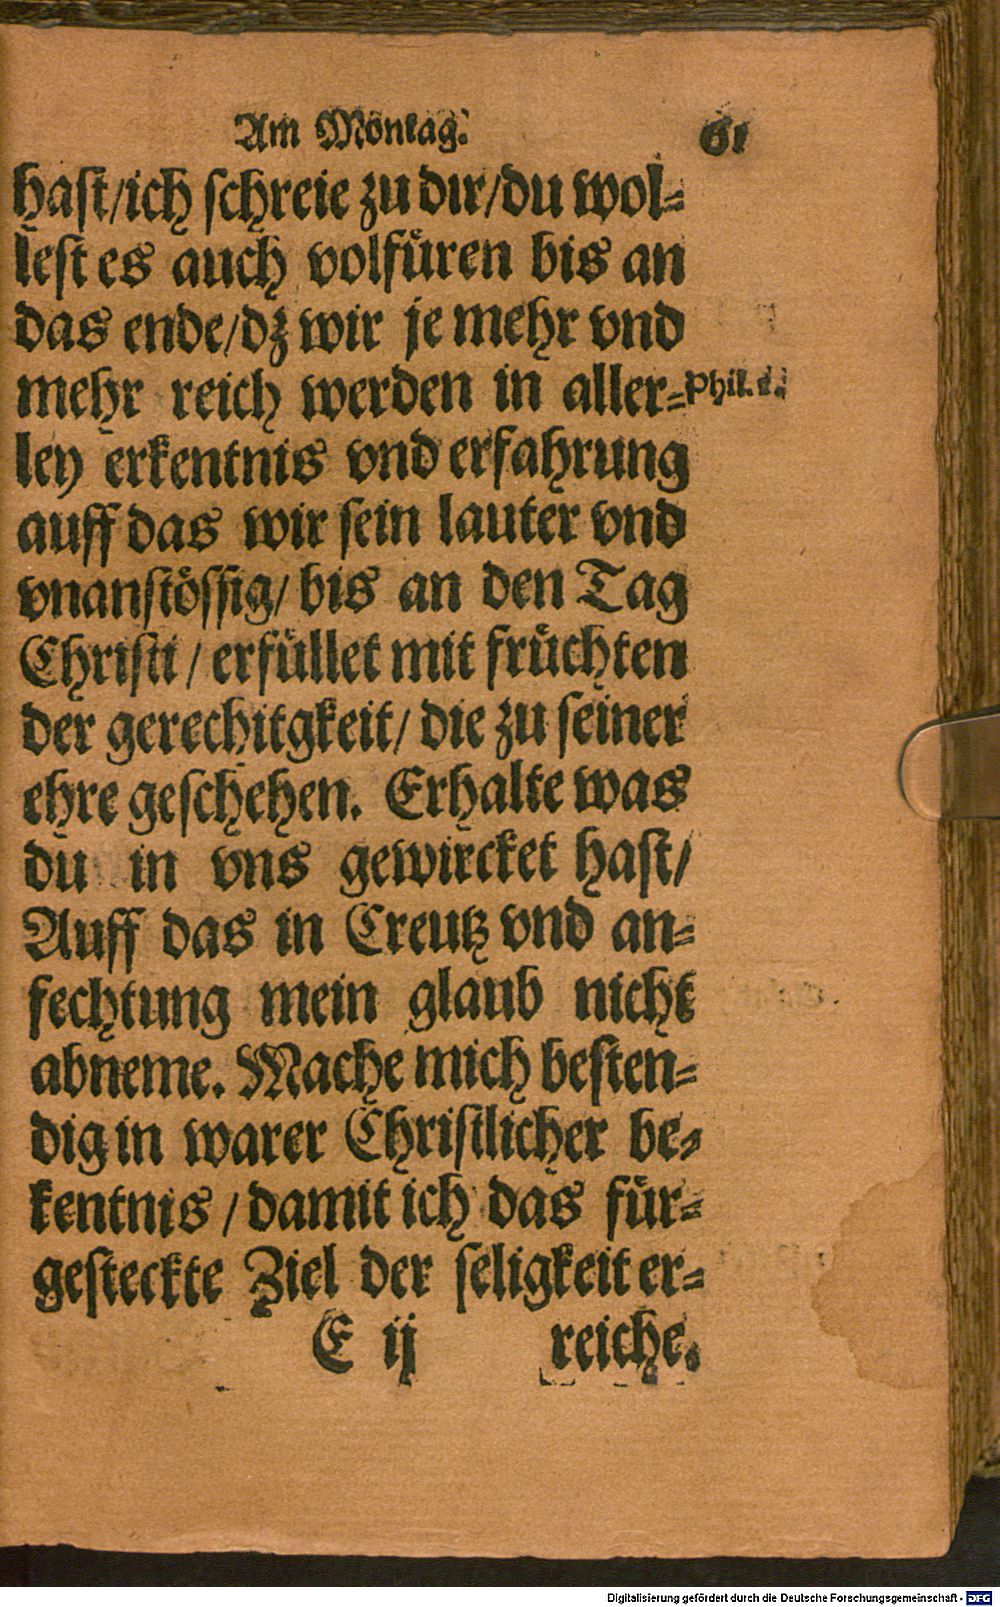 Am Montag. 61
hast/ich schreie zu dir/du wol-
lest es auch volfüren bis an
das ende/dz wir je mehr vnd
mehr reich werden in aller- Phil. 1.
ley erkentnis vnd erfahrung
auff das wir sein lauter vnd
vnanstössig/ bis an den Tag
Christi / erfüllet mit früchten
der gerechitgkeit/ die zu seiner
ehre geschehen. Erhalte was
du in vns gewircket hast/
Auff das in Creutz vnd an-
fechtung mein glaub nicht
abneme. Mache mich besten-
dig in warer Christlicher be-
kentnis / damit ich das für-
gesteckte Ziel der seligkeit er-
E ij reiche.
Digitalisierung gefördert durch die Deutsche Forschungsgemeinschaft - DFG